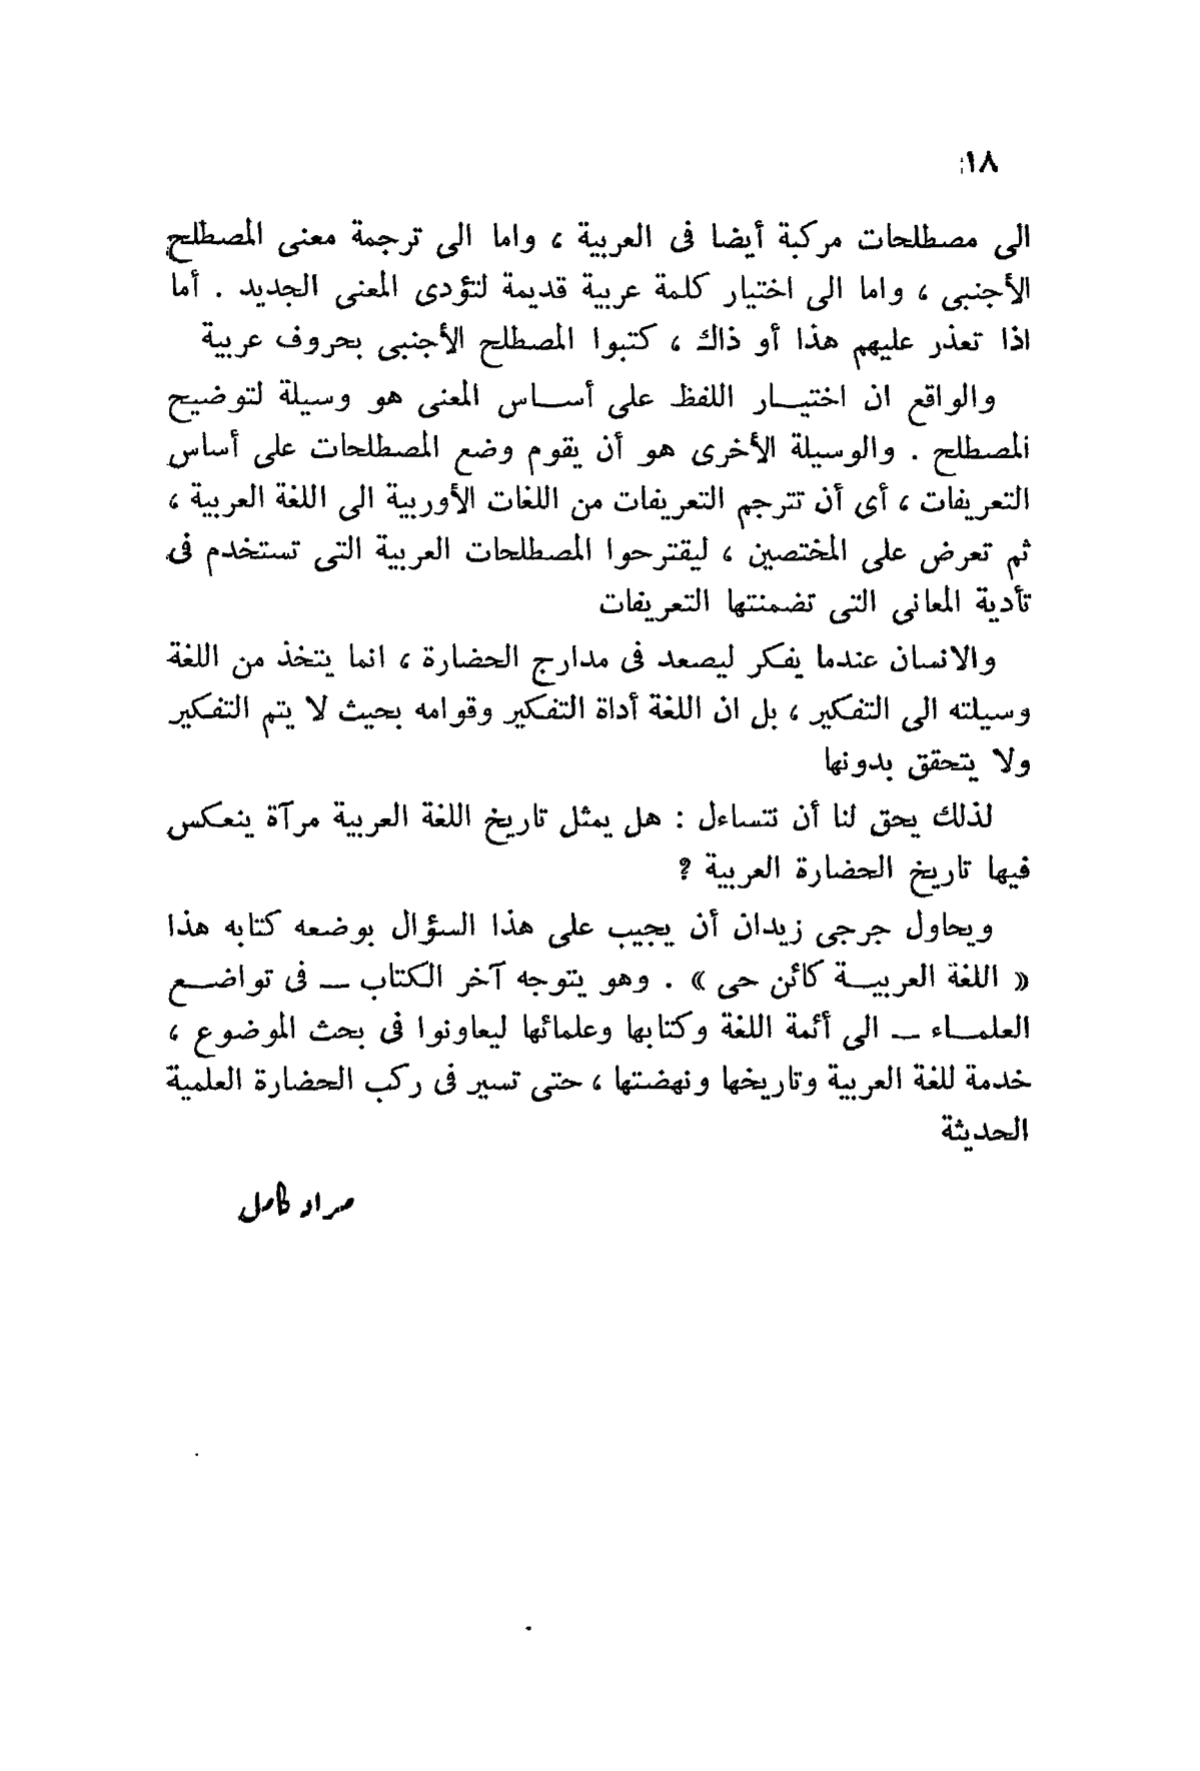 ١٨
الى مصطلحات مركبة أيضا فى العربية ، واما الى ترجمة معنى المصطلح
الأجنبى ، واما الى اختيار كلمة عربية قديمة لتؤدى المعنى الجديد . أما
اذا تعذر عليهم هذا أو ذاك ، كتبوا المصطلح الأجنبى بحروف عربية
والواقع ان اختيــار اللفظ على أســاس المعنى هو وسيلة لتوضيح
المصطلح . والوسيلة الأخرى هو أن يقوم وضع المصطلحات على أساس
التعريفات ، أى أن تترجم التعريفات من اللغات الأوربية الى اللغة العربية ،
ثم تعرض على المختصين ، ليقترحوا المصطلحات العربية التى تستخدم فى
تأدية المعانى التى تضمنتها التعريفات
والانسان عندما يفكر ليصعد فى مدارج الحضارة ، انما يتخذ من اللغة
وسيلته الى التفكير ، بل ان اللغة أداة التفكير وقوامه بحيث لا يتم التفكير
ولا يتحقق بدونها
لذلك يحق لنا أن نتساءل : هل يمثل تاريخ اللغة العربية مرآة ينعكس
فيها تاريخ الحضارة العربية ؟
ويحاول جرجى زيدان أن يجيب على هذا السؤال بوضعه كتابه هذا
« اللغة العربيــة كائن حى » . وهو يتوجه آخر الكتاب ــ فى تواضــع
العلمــاء ــ الى أئمة اللغة وكتابها وعلمائها ليعاونوا فى بحث الموضوع ،
خدمة للغة العربية وتاريخها ونهضتها ، حتى تسير فى ركب الحضارة العلمية
الحديثة
مراد كامل